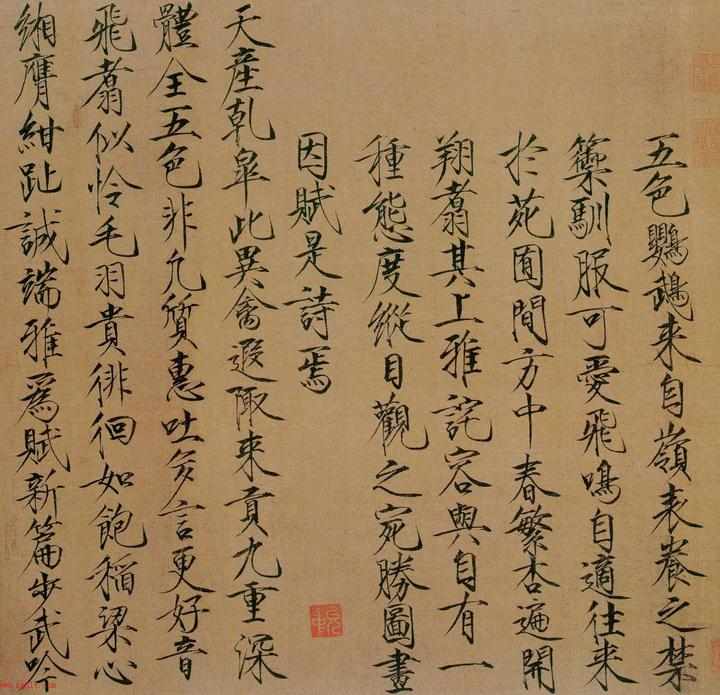 五色鸚鵡来自嶺表養之禁
籞馴服可愛飛鳴自適往来
於苑囿間方中春繁杏遍開
翔翥其上雅詫容與自有一
種態度縱目觀之宛勝圖畫
因賦是詩焉
天産乾皐此異禽遐陬来貢九重深
體全五色非凢質惠吐多言更好音
飛翥似怜毛羽貴徘徊如飽稲粱心
緗膺紺趾誠端雅爲賦新篇步武吟